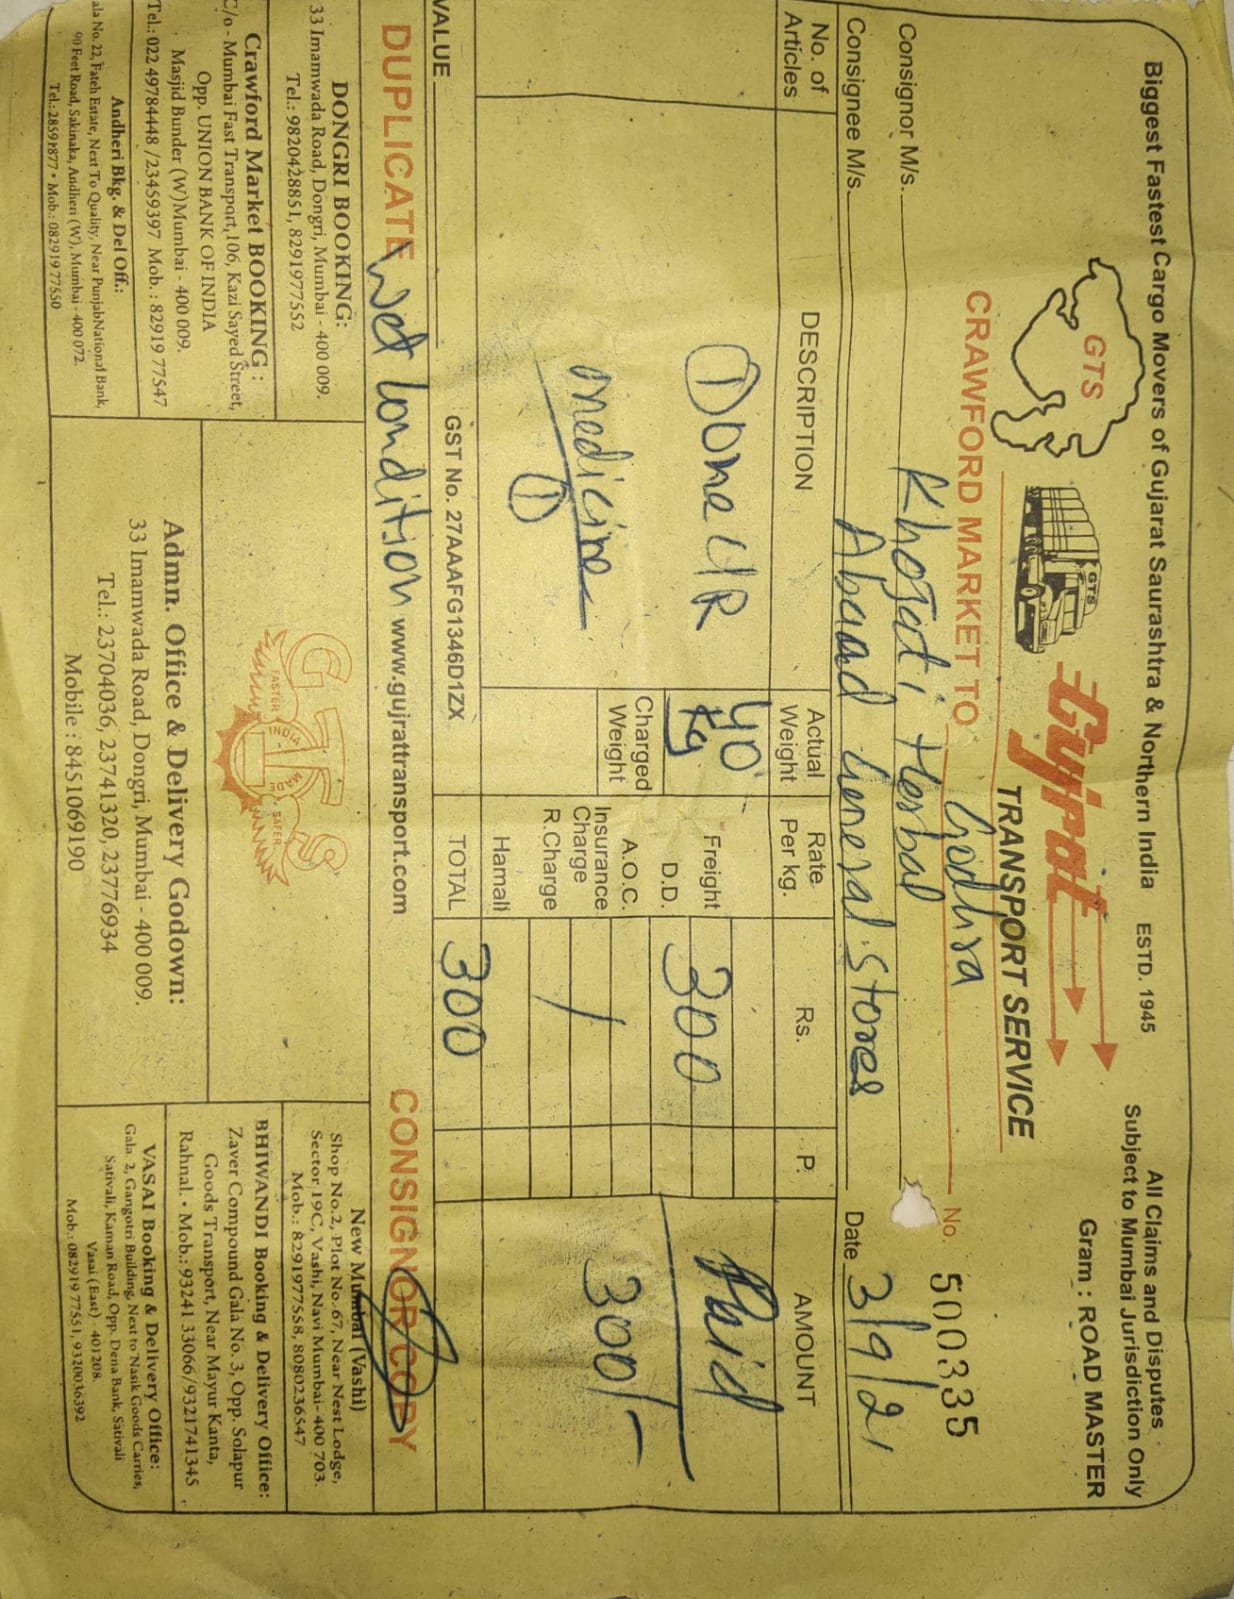 Biggest Fastest Cargo Movers of Gujarat Saurashtra & Northern India ESTD. 1945
All Claims and Disputes
Subject to Mumbai Jurisdiction Only
GTS
GTS
Gujrat
TRANSPORT SERVICE
Gram : ROAD MASTER
CRAWFORD MARKET TO Godhra No. 500335
Consignor M/s. Khojati Herbal
Consignee M/s. Abaad General Stores Date 3/9/21
No. of Articles
DESCRIPTION
Actual Weight
Rate Per kg.
Rs.
P.
AMOUNT
① One
40 kg
Freight 300
Paid
D.D.
Charged Weight
A.O.C.
medicine
Insurance Charge
300/-
R.Charge
①
Hamali
VALUE
GST No. 27AAAFG1346D1ZX
TOTAL 300
DUPLICATE Wet Condition www.gujrattransport.com CONSIGNOR COPY
DONGRI BOOKING:
33 Imamwada Road, Dongri, Mumbai - 400 009.
Tel.: 9820428851, 8291977552
Crawford Market BOOKING :
C/o - Mumbai Fast Transport,106, Kazi Sayed Street,
Opp. UNION BANK OF INDIA
Masjid Bunder (W)Mumbai - 400 009.
Tel.: 022 49784448 /23459397 Mob. : 82919 77547
Andheri Bkg. & Del Off.:
ala No. 22, Fateh Estate, Next To Quality, Near PunjabNational Bank,
90 Feet Road, Sakinaka, Andheri (W), Mumbai - 400 072.
Tel.:28591877 • Mob.: 082919 77550
GTS
FASTER
INDIA
SAFER
Admn. Office & Delivery Godown:
33 Imamwada Road, Dongri, Mumbai - 400 009.
Tel.: 23704036, 23741320, 23776934
Mobile : 8451069190
New Mumbai (Vashi)
Shop No.2, Plot No.67, Near Nest Lodge,
Sector 19C, Vashi, Navi Mumbai- 400 703.
Mob.: 8291977558, 8080236547
BHIWANDI Booking & Delivery Office:
Zaver Compound Gala No. 3, Opp. Solapur
Goods Transport, Near Mayur Kanta,
Rahnal. • Mob.: 93241 33066/9321741345
VASAI Booking & Delivery Office:
Gala 2, Gangotri Building, Next to Nasik Goods Carries,
Sativali, Kaman Road, Opp. Dena Bank, Sativali
Vasai (East) - 401208.
Mob.: 082919 77551, 9320036392